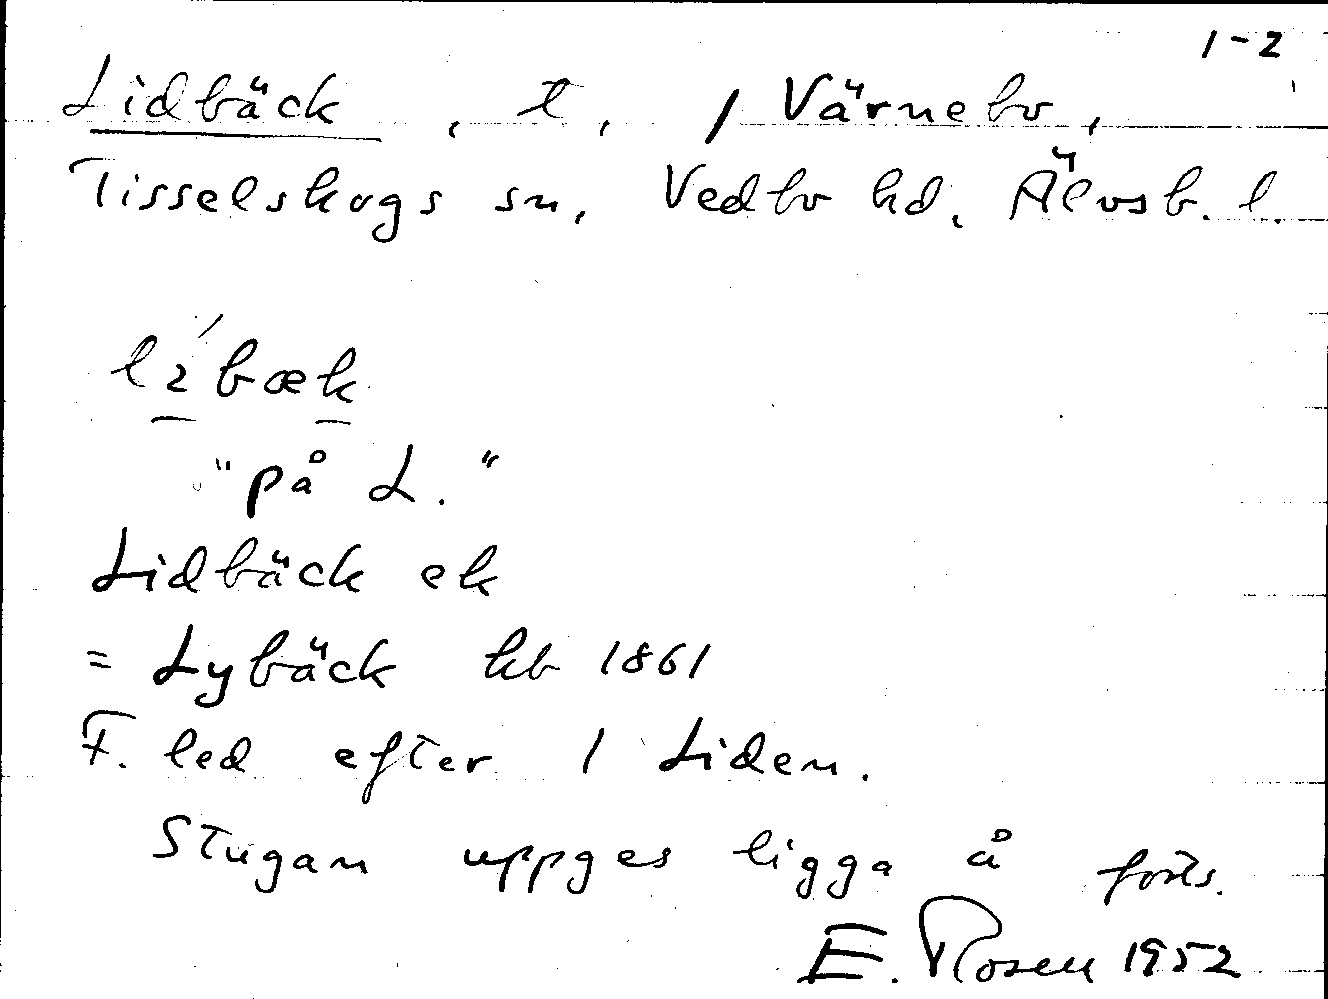 1-2
Lidbäck, t, / Värnebo,
Tisselskogs sn, Vedbo hd, Älvsb. l.
lɪ́bæk
"på L."
Lidbäck ek
= Lybäck kb 1861
F. led efter / Liden.
Stugan uppges ligga å forts.
E. Rosen 1952